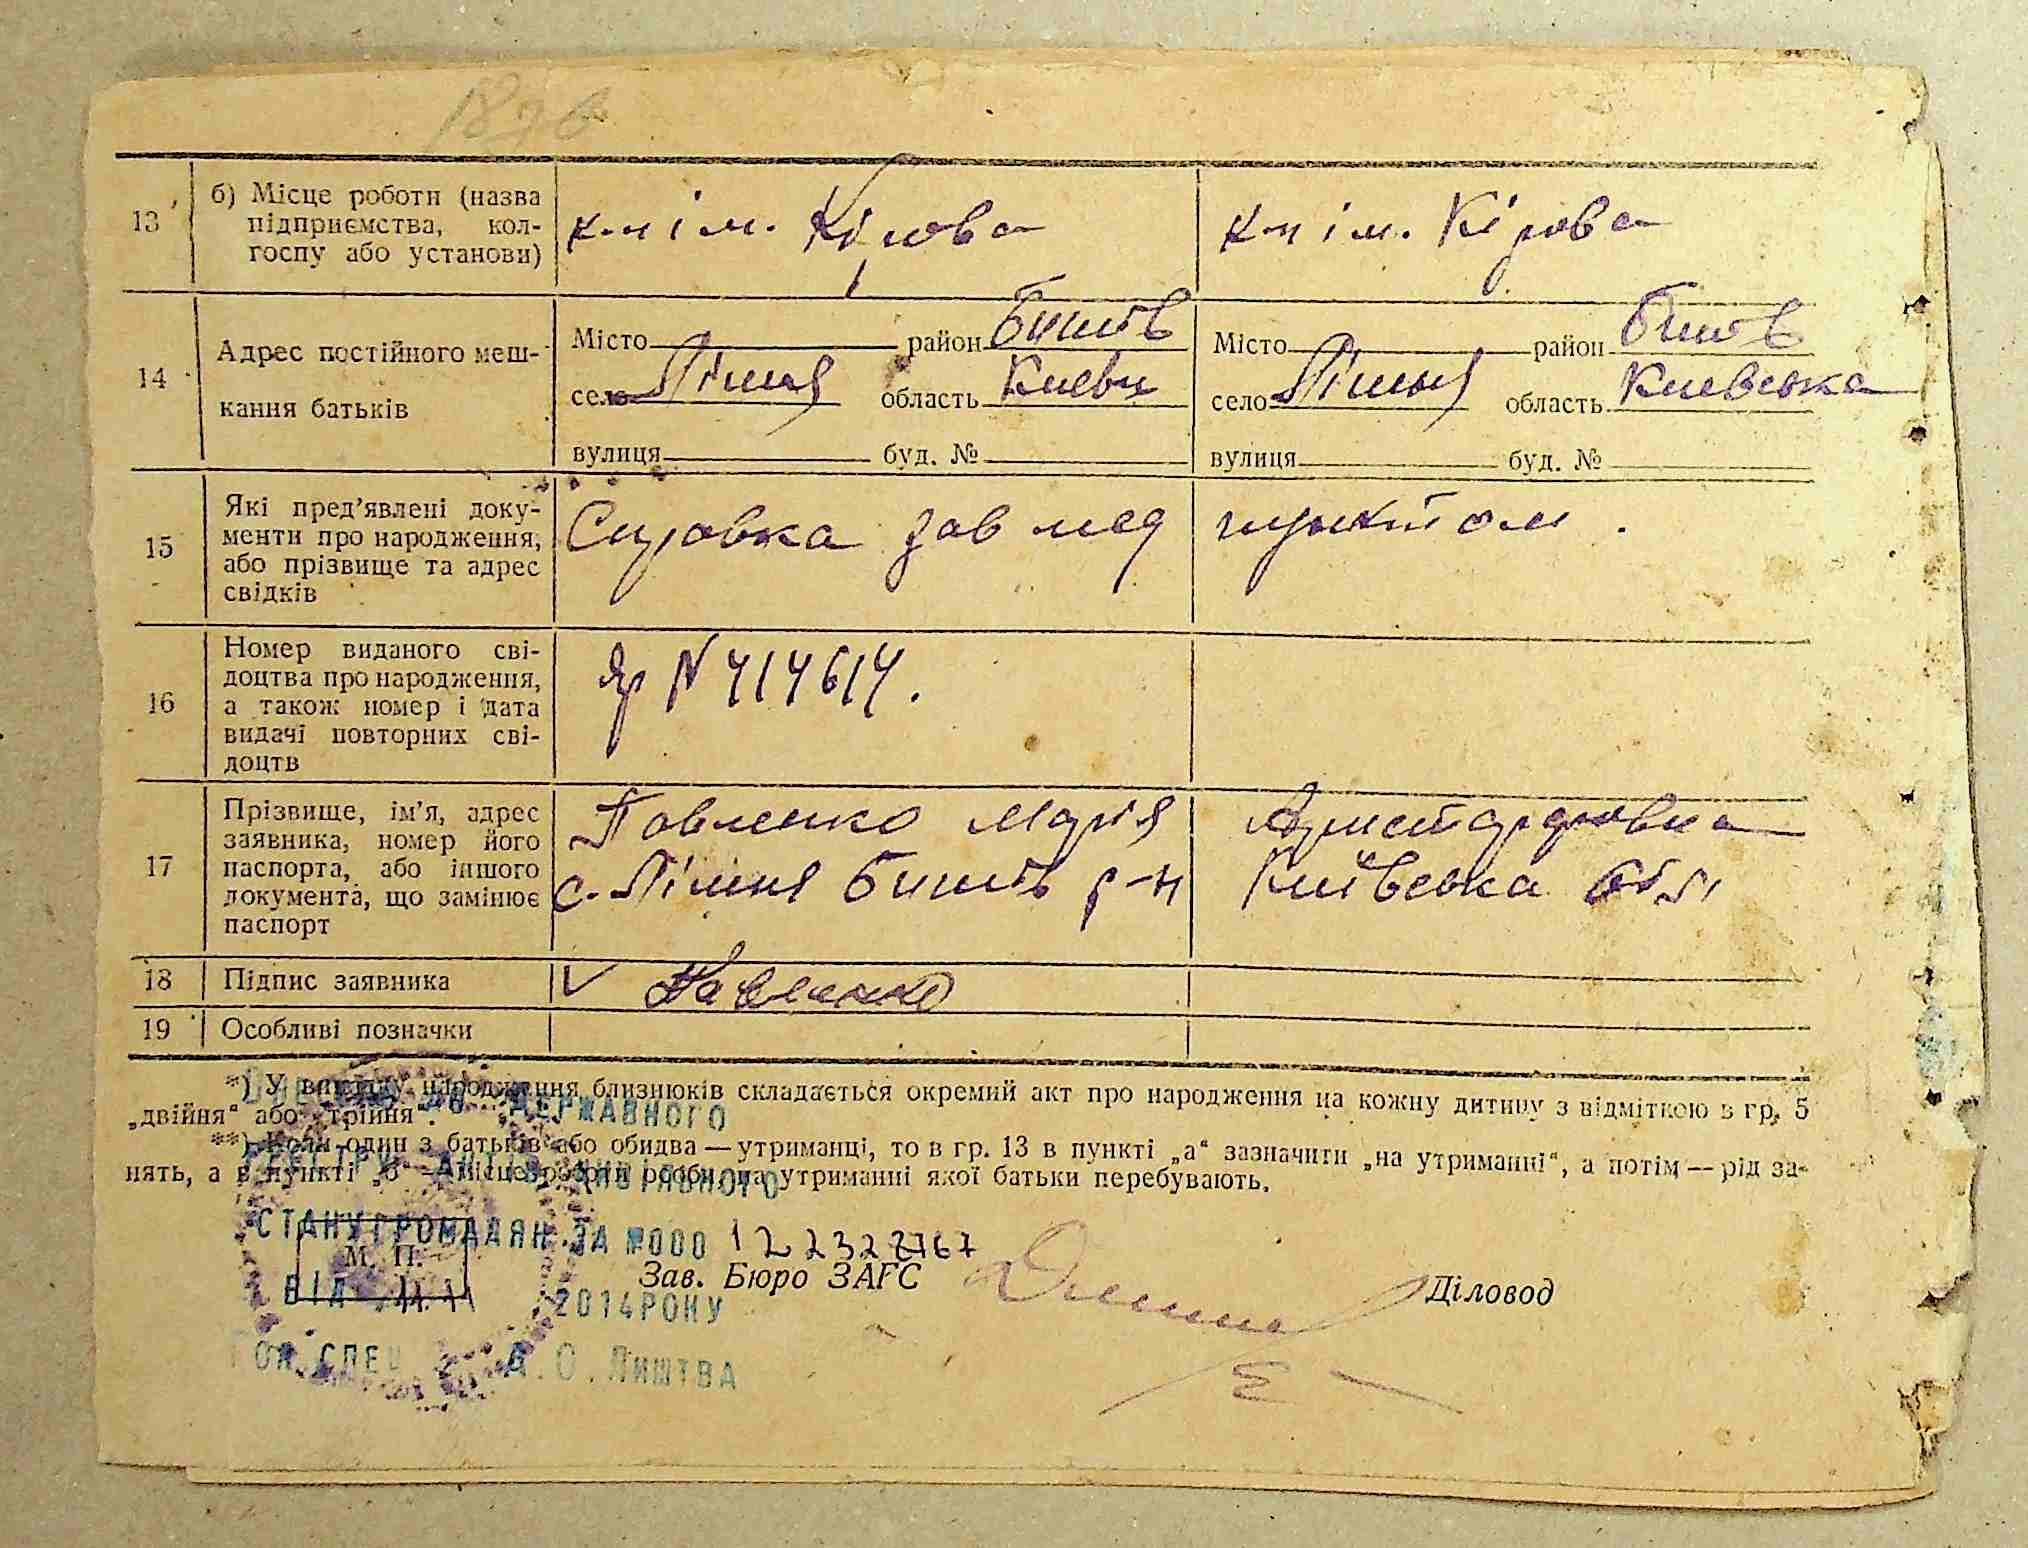 13
б) Місце роботи (назва
підприємства, кол-
госпу або установи)
к-п ім. Кірова
к-п ім. Кірова
14
Адрес постійного меш-
кання батьків
Місто район Бишів
село Лішня область Києвн
вулиця буд. №
Місто район Бишів
село Лішня область Киевська
вулиця буд. №
15
Які пред'явлені доку-
менти про народження,
або прізвище та адрес
свідків
Справка зав мед пунктом.
16
Номер виданого сві-
доцтва про народження,
а також номер і дата
видачі повторних сві-
доцтв
N 414614.
17
Прізвище, ім'я, адрес
заявника, номер його
паспорта, або іншого
документа, що замінює
паспорт
Павленко Марія
с. Лішня Бишів р-н Київська обл
18 Підпис заявника
V Павленко
19 Особливі позначки
*) У випадку народження близнюків складається окремий акт про народження на кожну дитину з відміткою в гр. 5
„двійня" або „трійня".
**) Коли один з батьків або обидва — утриманці, то в гр. 13 в пункті „а" зазначити „на утриманні", а потім — рід за-
нять, а в пункті „б" — місце роботи особи, на утриманні якої батьки перебувають.
ДЕРЖАВНОГО
РЕЄСТРУ АКТІВ ЦИВІЛЬНОГО
СТАНУ ГРОМАДЯН ЗА №000 12232767
М. П.
ВІД 11.11 2014 РОКУ
ГОЛ.СПЕЦ О.ЛИШТВА
Зав. Бюро ЗАГС
Діловод